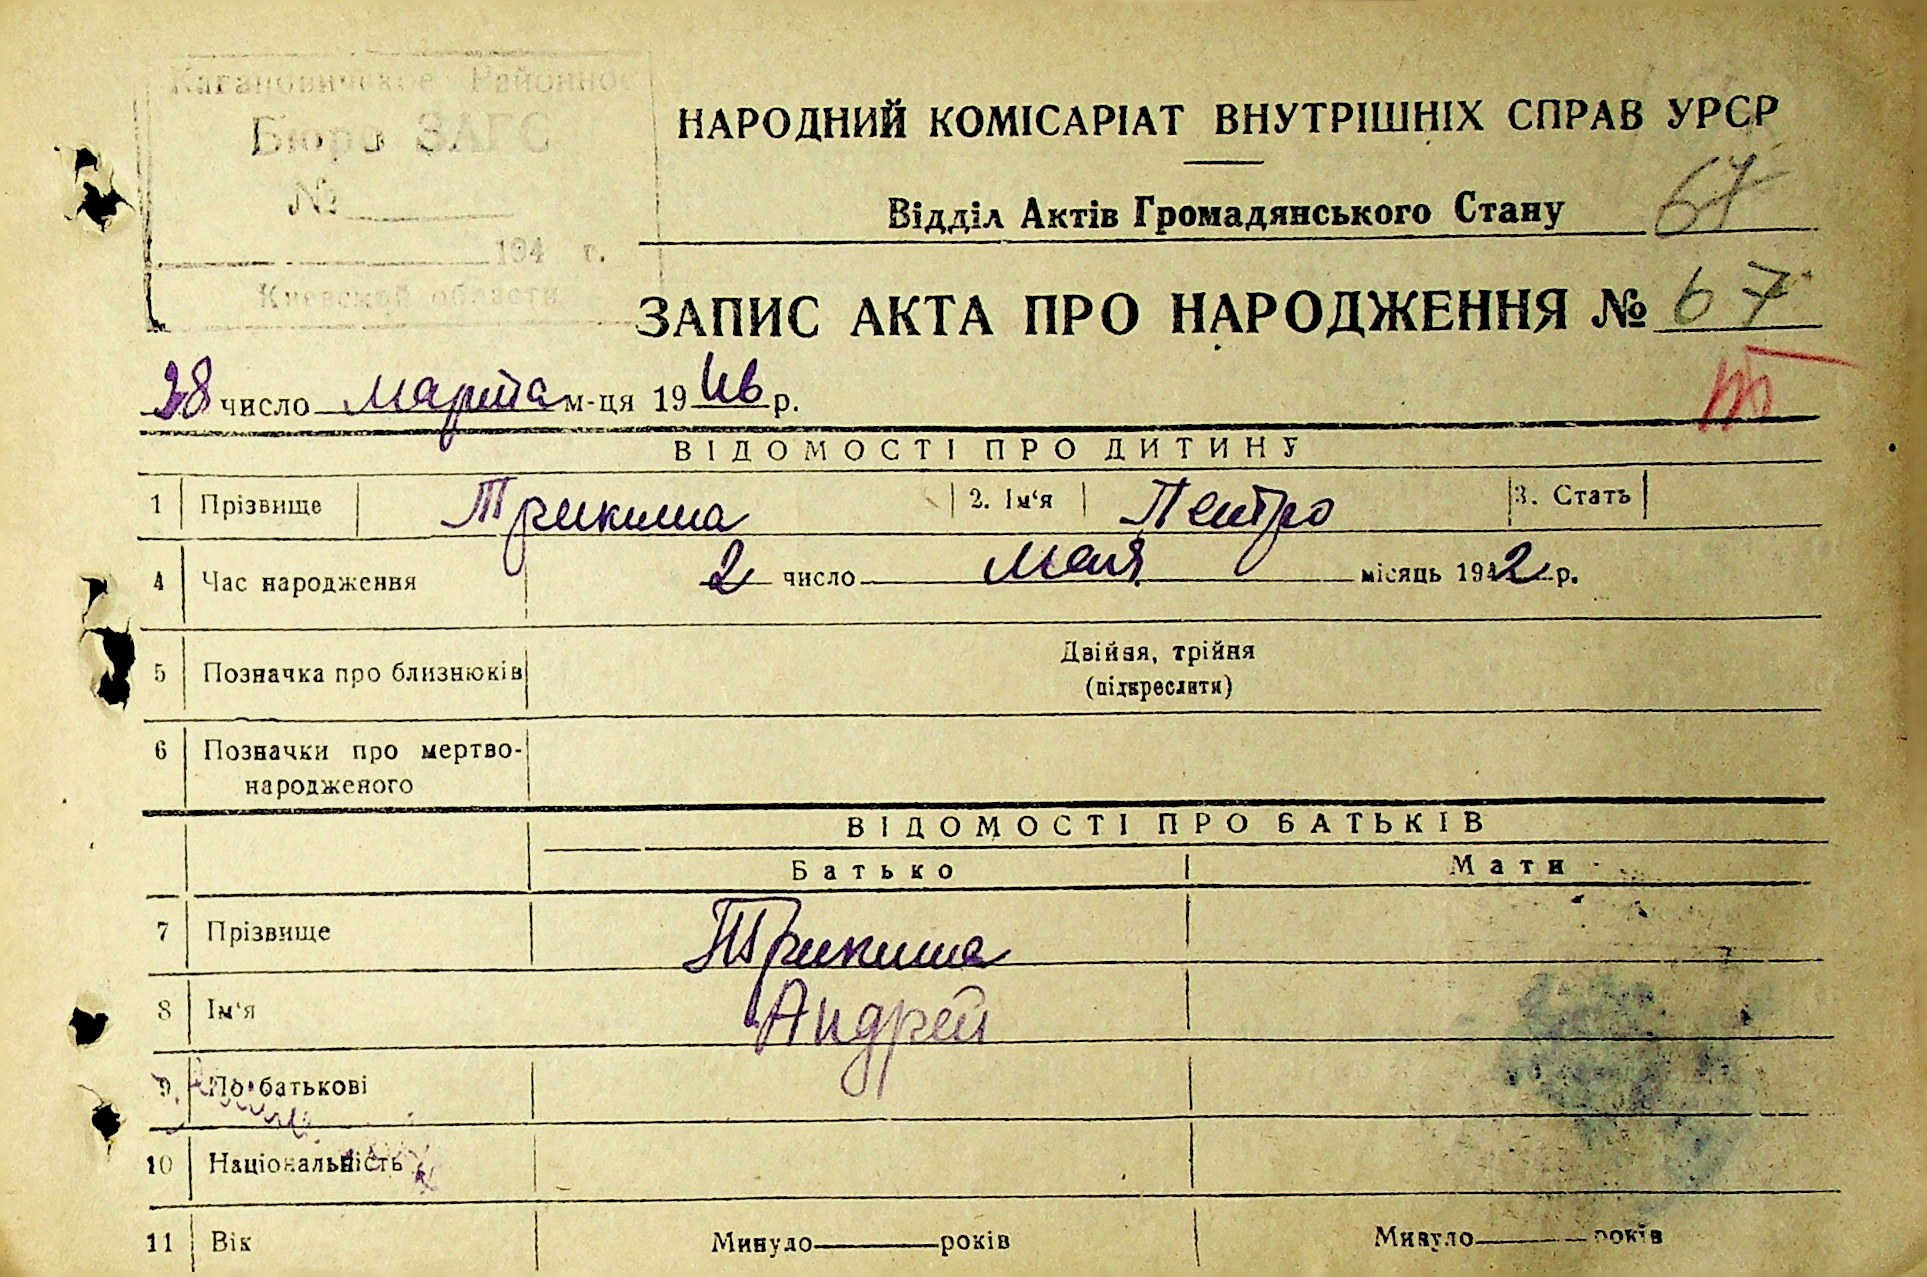 Кагановичское Районное
Бюро ЗАГС
№
194 г.
Киевской области
НАРОДНИЙ КОМІСАРІАТ ВНУТРІШНІХ СПРАВ УРСР
Відділ Актів Громадянського Стану 67
ЗАПИС АКТА ПРО НАРОДЖЕННЯ № 67
28 число марта м-ця 1946 р.
ВІДОМОСТІ ПРО ДИТИНУ
1 Прізвище Трикиша 2. Ім'я Пентро 3. Стать
4 Час народження 2 число мая місяць 1942 р.
5 Позначка про близнюків Двійня, трійня
(підкреслити)
6 Позначки про мертво-
народженого
ВІДОМОСТІ ПРО БАТЬКІВ
Батько Мати
7 Прізвище Трикиша
8 Ім'я Андрей
9 По-батькові
10 Національність
11 Вік Минуло років Минуло років